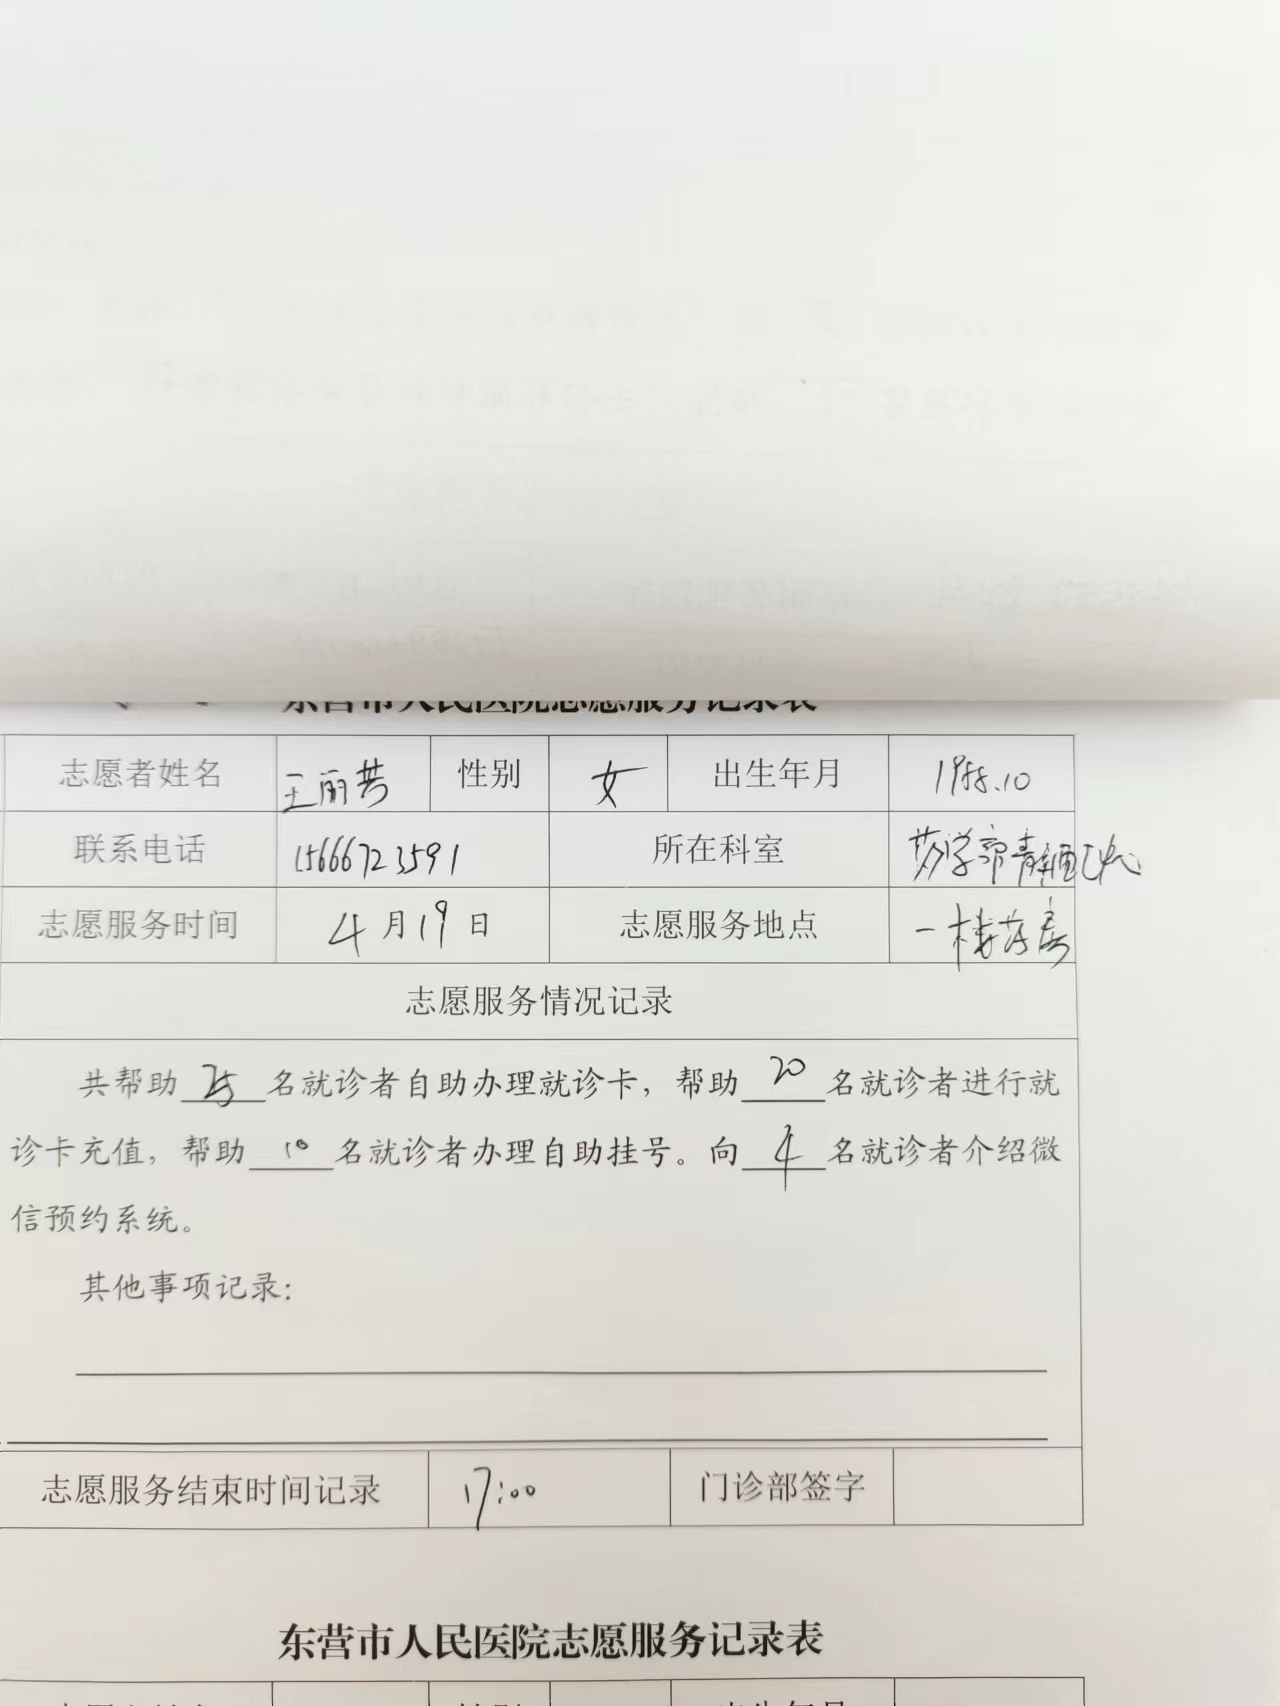 东营市人民医院志愿服务记录表
志愿者姓名 王丽芸 性别 女 出生年月 1988.10
联系电话 15666723591 所在科室 药学部静配中心
志愿服务时间 4月19日 志愿服务地点 一楼药房
志愿服务情况记录
共帮助25名就诊者自助办理就诊卡，帮助20名就诊者进行就
诊卡充值，帮助10名就诊者办理自助挂号。向4名就诊者介绍微
信预约系统。
其他事项记录：
志愿服务结束时间记录 17:00 门诊部签字
东营市人民医院志愿服务记录表